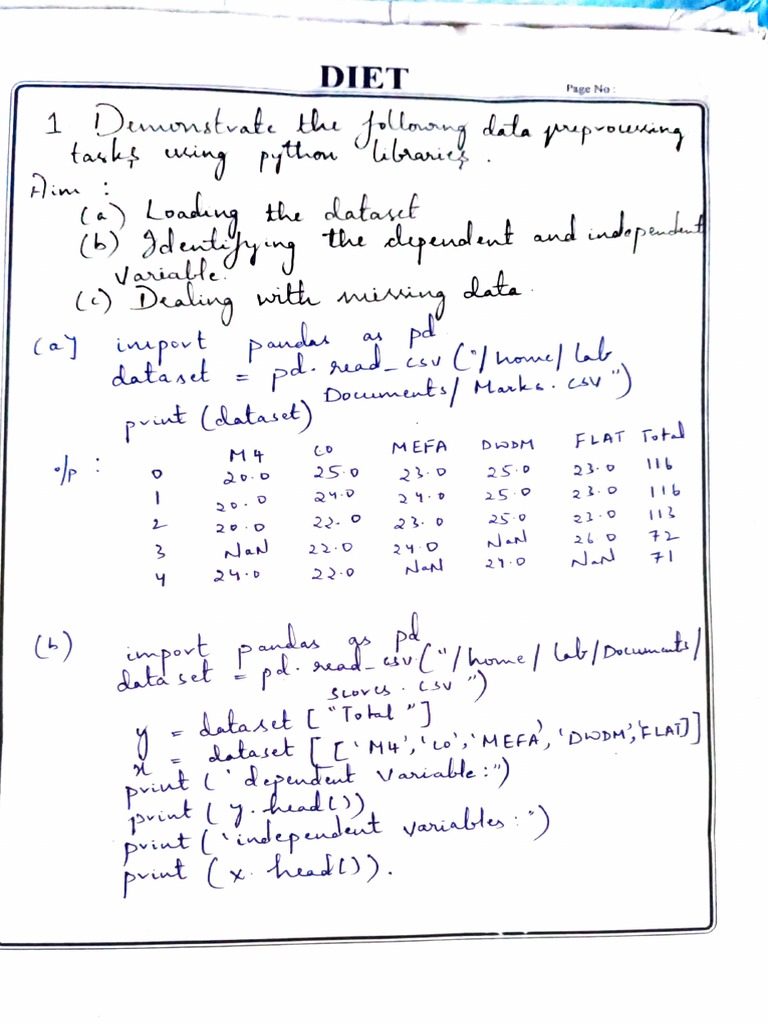 DIET
Page No :
1 Demonstrate the following data preprocessing
tasks using python libraries .
Aim :
(a) Loading the dataset
(b) Identifying the dependent and independent
Variable.
(c) Dealing with missing data .
(a) import pandas as pd
dataset = pd. read_csv ("/home/ lab
Documents/ Marks. csv ")
print (dataset)
o/p : M4 CO MEFA DWDM FLAT Total
0 20.0 25.0 23.0 25.0 23.0 116
1 20.0 24.0 24.0 25.0 23.0 116
2 20.0 22.0 23.0 25.0 23.0 113
3 NaN 22.0 24.0 NaN 26 0 72
4 24.0 22.0 NaN 24.0 NaN 71
(b) import pandas as pd
dataset = pd. read_csv ("/home/ lab/Documents/
scores. csv ")
y = dataset ["Total "]
x = dataset [ ['M4','CO','MEFA','DWDM','FLAT]]
print ('dependent variable:")
print ( y. head())
print ('independent variables: ")
print ( x. head()).